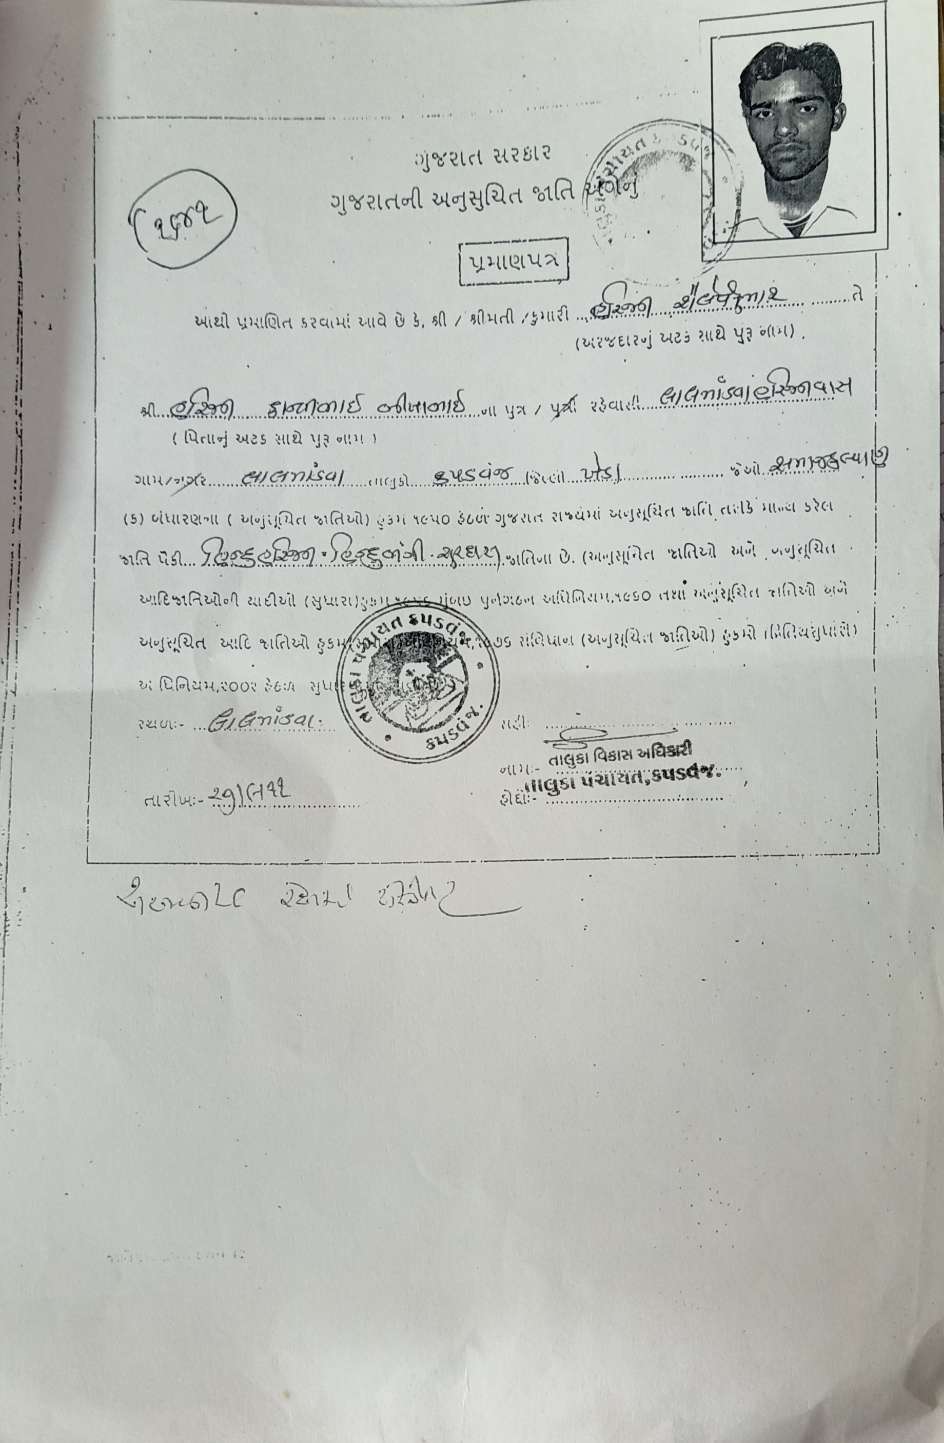 ગુજરાત સરકાર
ગુજરાતની અનુસુચિત જાતિ અંગેનું
૨૬૪૧
પ્રમાણપત્ર
આથી પ્રમાણિત કરવામાં આવે છે કે, શ્રી / શ્રીમતી / કુમારી હરિજન શૈલેષકુમાર તે
(અરજદારનું અટક સાથે પુરૂ નામ)
શ્રી હરિજન કાન્તીભાઈ ભીખાભાઈ ના પુત્ર / પુત્રી રહેવાસી લાલમાંડવા હરિજનવાસ
( પિતાનું અટક સાથે પુરૂ નામ )
ગામ/નગર લાલમાંડવા તાલુકો કપડવંજ જિલ્લો ખેડા જેઓ સમાજકલ્યાણ
(ક) બંધારણના ( અનુસૂચિત જાતિઓ) હુકમ ૧૯૫૦ હેઠળ ગુજરાત રાજ્યમાં અનુસૂચિત જાતિ તરીકે માન્ય કરેલ
જાતિ પૈકી હિન્દુ હરિજન. હિન્દુ ભંગી. જાતિના છે. (અનુસૂચિત જાતિઓ અને અનુસૂચિત
આદિજાતિઓની યાદીઓ (સુધારા) હુકમ ૧૯૫૬ મુંબઇ પુનર્ગઠન અધિનિયમ,૧૯૬૦ તથા અનુસૂચિત જાતિઓ અને
અનુસૂચિત આદિ જાતિઓ હુકમ ૧૯૭૬ સંવિધાન (અનુસૂચિત જાતિઓ) હુકમો (દ્વિતિય સુધારો)
અધિનિયમ,૨૦૦૨ હેઠળ
સ્થળઃ- લાલમાંડવા. સહીઃ
તાલુકા પંચાયત કપડવંજ
કપડવંજ.
નામઃ- તાલુકા વિકાસ અધિકારી
તાલુકા પંચાયત,કપડવંજ.
તારીખઃ- હોદ્દોઃ-